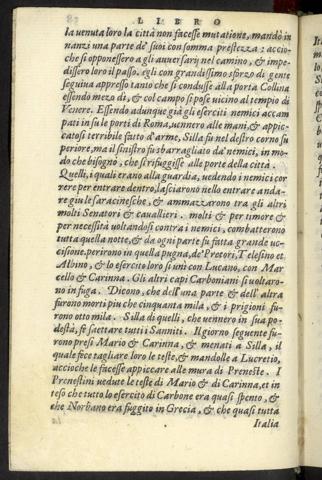 LIBRO
la venuta loro la città non facesse mutatione, mandò in
nanzi una parte de' suoi con somma prestezza: accio-
che si opponessero a gli auuersarij nel camino, & impe-
dissero loro il passo. egli con grandissimo sforzo di gente
seguiua appresso tanto che si condusse alla porta Collina
essendo mezo dì, & col campo si pose uicino al tempio di
Venere. Essendo adunque già gli eserciti nemici accam
pati in su le porti di Roma, uennero alle mani, & appic-
catosi terribile fatto d'arme, Silla fù nel destro corno su
periore, ma il sinistro fù sbarragliato da' nemici, in mo-
do che bisognò, che si rifuggisse alle porte della città.
Quelli, i quali erano alla guardia, uedendo i nemici cor
rere per entrare dentro, lasciarono nello entrare anda-
re giu le saracinesche, & ammazzarono tra gli altri
molti Senatori & cauallieri. molti & per timore &
per necessità uoltandosi contra i nemici, combatterono
tutta quella notte, & da ogni parte fu fatta grande uc-
cisione. perirono in quella pugna, de' Pretori, Telesino et
Albino, & lo esercito loro si unì con Lucano, con Mar
cello & Carinna. Gli altri capi Carboniani si uoltaro-
no in fuga. Dicono, che dell'una parte & dell'altra
furono morti piu che cinquanta mila, & i prigioni fu-
rono otto mila. Silla di quelli, che uennero in sua po-
destà, fe saettare tutti i Sanniti. Il giorno seguente fu-
rono presi Mario & Carinna, & menati a Silla, il
quale fece tagliare loro le teste, & mandolle a Lucretio,
accioche le facesse appiccare alle mura di Preneste. I
Prenestini uedute le teste di Mario & di Carinna, et in
teso che tutto lo esercito di Carbone era quasi spento, &
che Norbano era fuggito in Grecia, & che quasi tutta
Italia